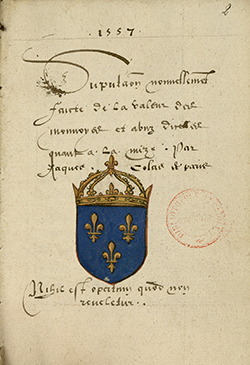 2
1557
Supulaon nouvellement
faicte de la valeur des
monnoyes et abuz dicelles
quant a la mize. Par
Jaques Colas de
Nihil est opertum quod non
reveletur.